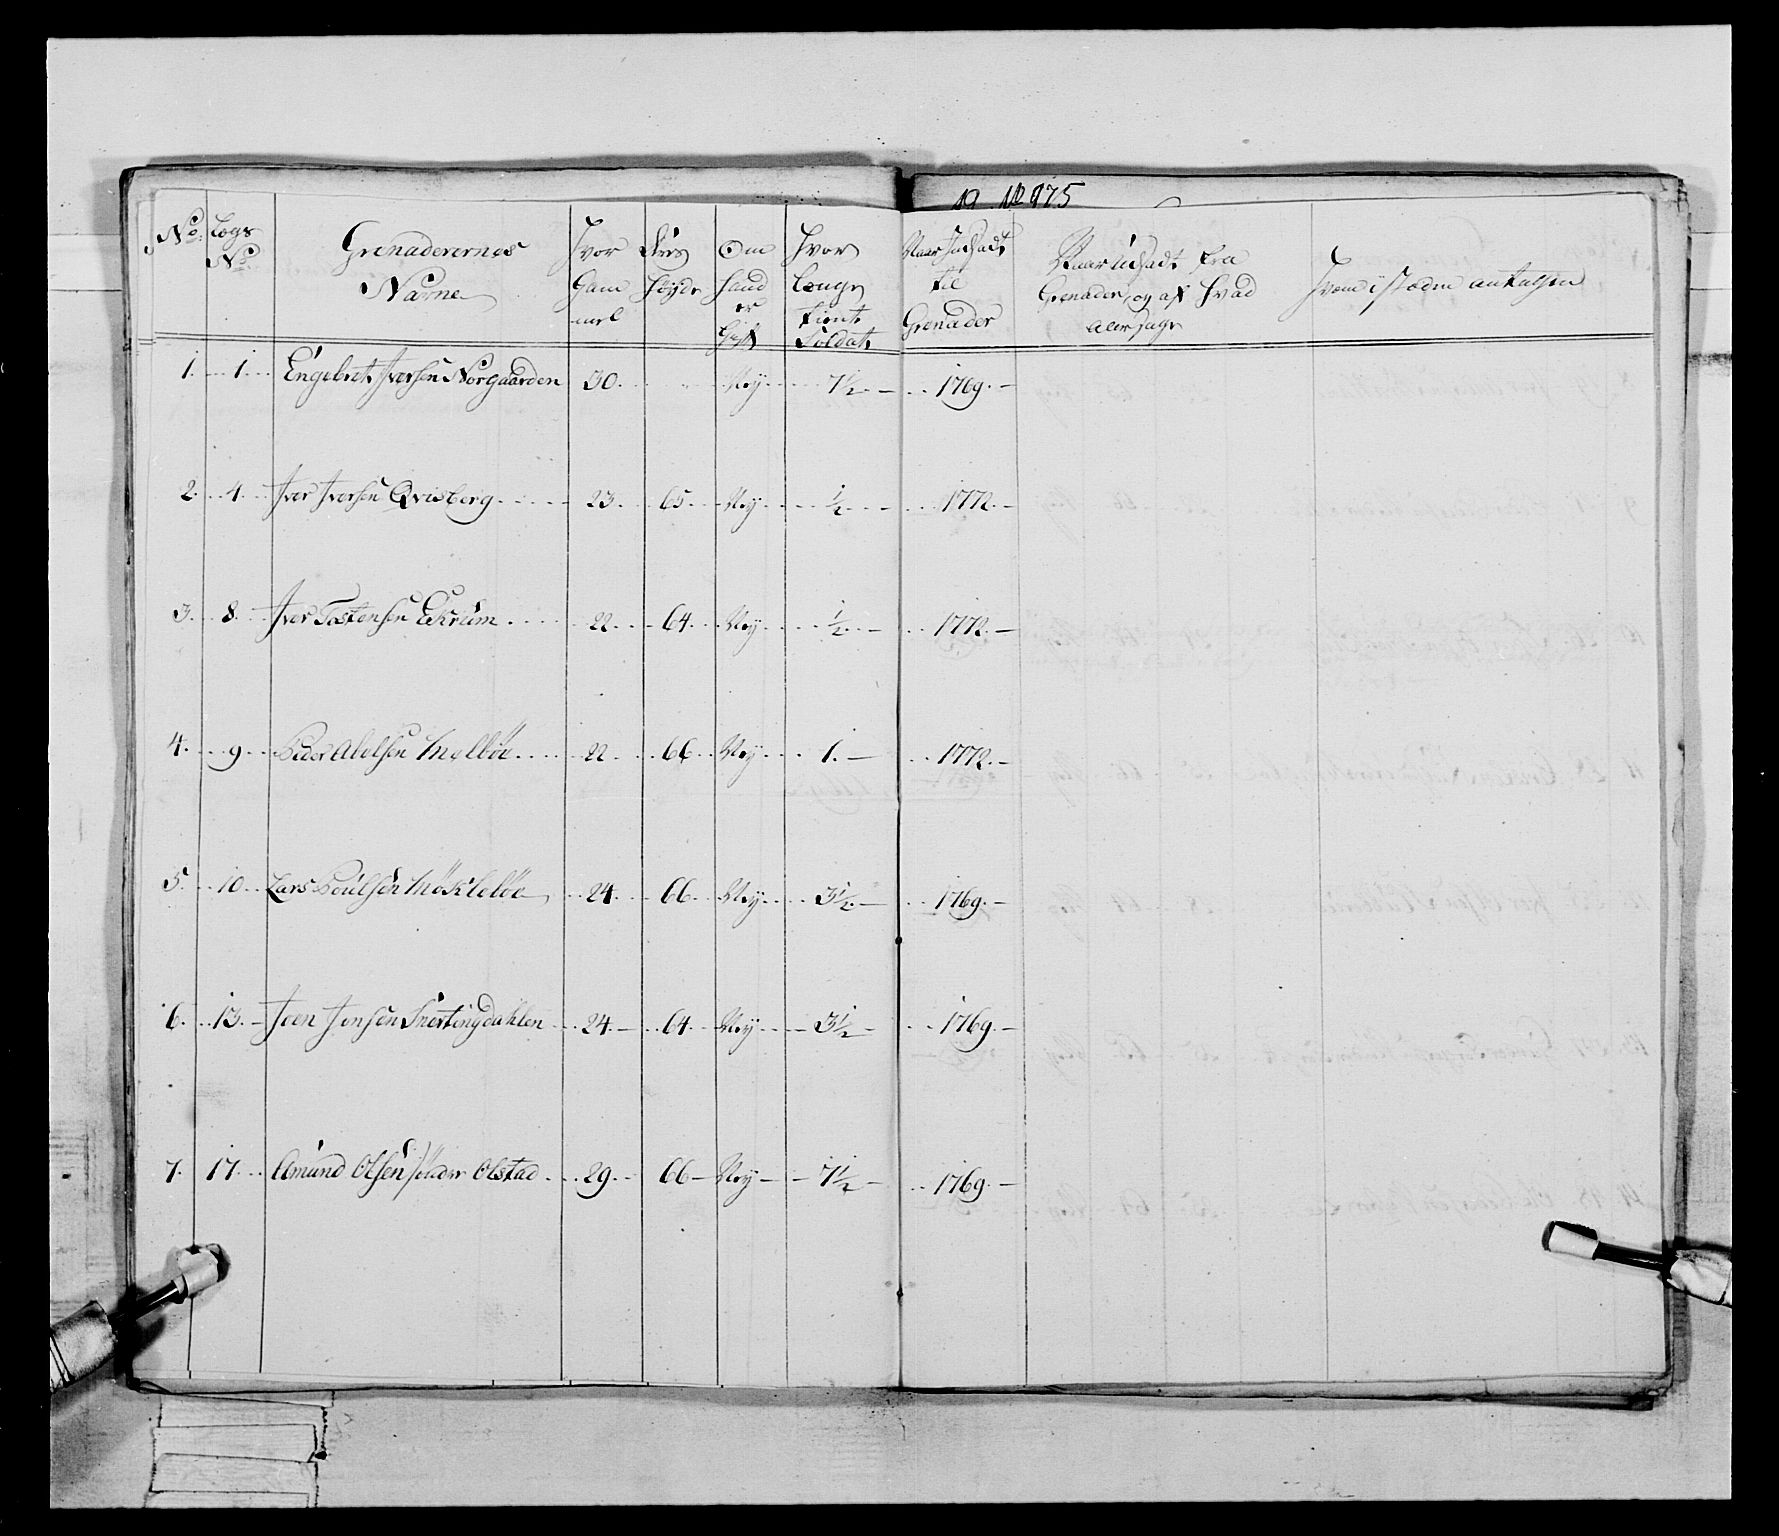 No 975
No Legs No Grenaderernes Navne Hvor Gammel Deris Høyde Om hand er Gift Hvor Længe tient Soldat Naar Indsadt til Grenader Naar Udsadt fra Grenader, og af hvad Aarsage Hvem i stæden antagen
1. 1. Engebret Iversen Norgaarden 30. Ney 7½ 1769.
2. 4. Iver Iversen Qvisberg 23. 65. Ney ½ 1772.
3. 8. Iver Tostensen Ekrum 22. 64. Ney ½ 1772.
4. 9. Peder Abelsen Melbøe 22. 66. Ney 1. 1772.
5. 10. Lars Poulsen Møklebøe 24. 66. Ney 3½ 1769.
6. 13. Joen Jonsen Snertingdahlen 24. 64. Ney 3½ 1769.
7. 17. Amund Olsen Olstad 29. 66 Ney 7½ 1769.